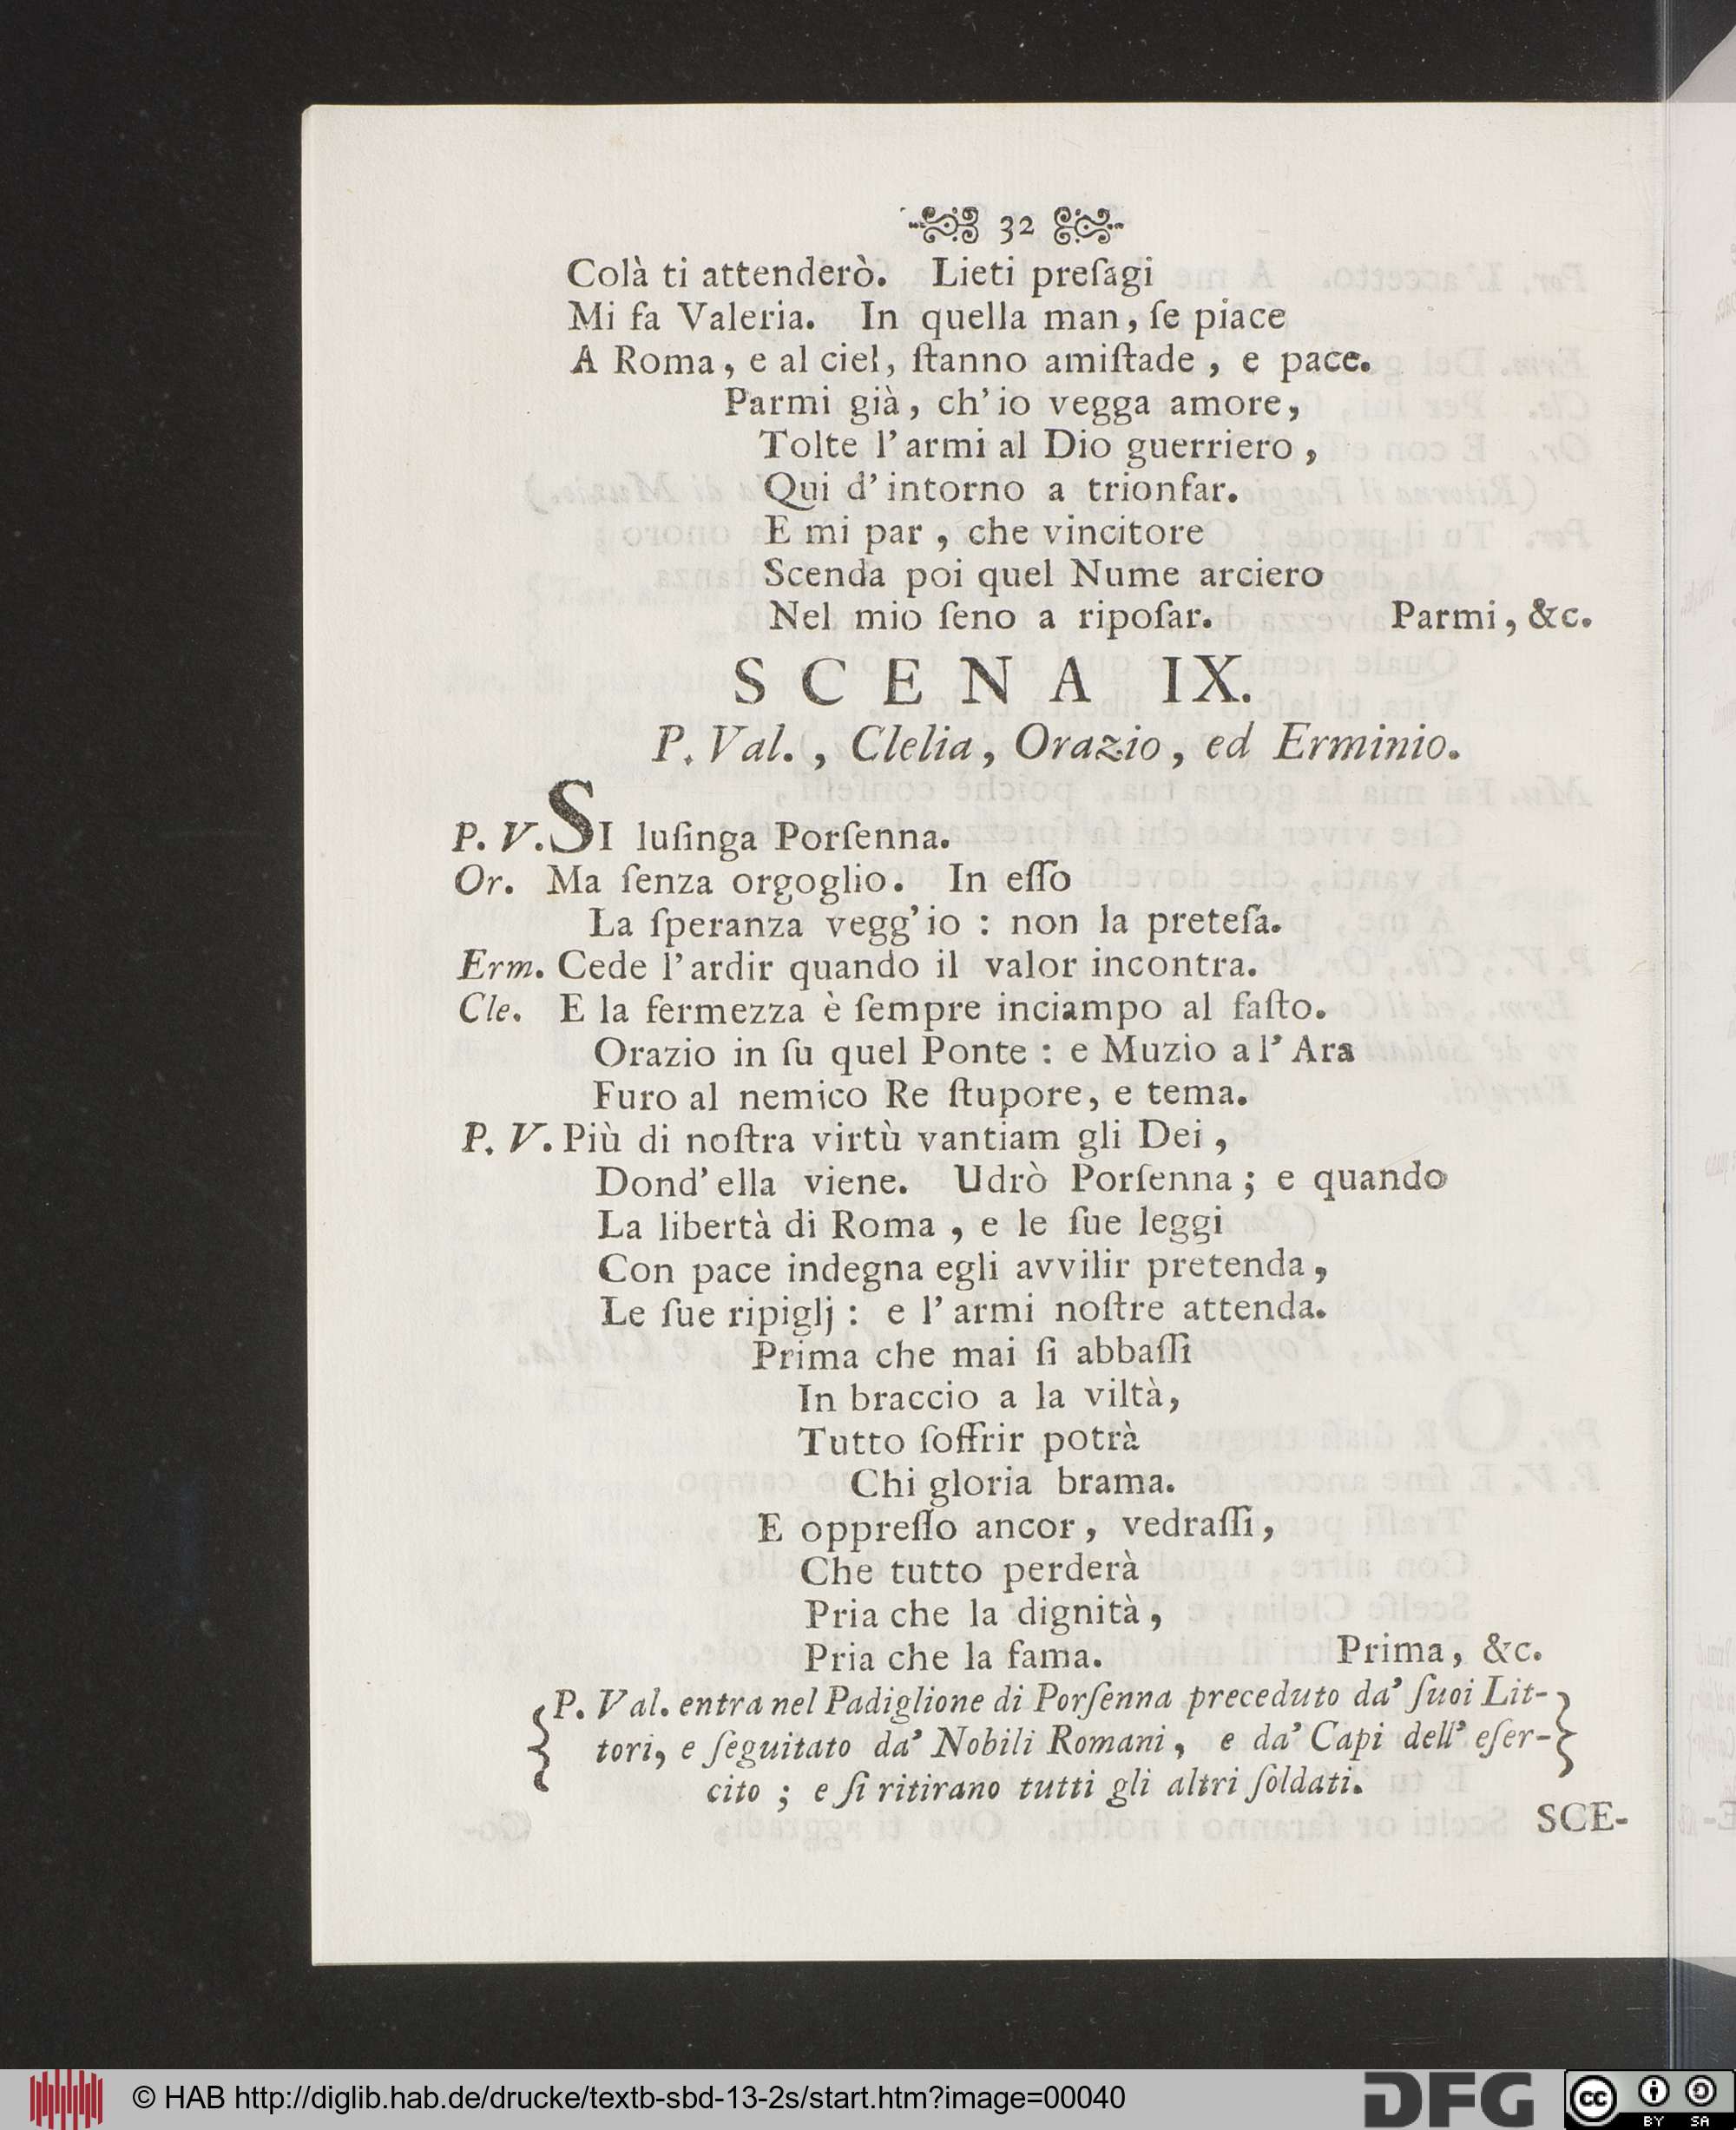 32
Colà ti attenderò. Lieti preſagi
Mi fa Valeria. In quella man, ſe piace
A Roma, e al ciel, ſtanno amiſtade, e pace.
Parmi già, ch'io vegga amore,
Tolte l'armi al Dio guerriero,
Qui d'intorno a trionfar.
E mi par, che vincitore
Scenda poi quel Nume arciero
Nel mio ſeno a ripoſar. Parmi, &c.
SCENA IX.
P. Val., Clelia, Orazio, ed Erminio.
P. V. SI luſinga Porſenna.
Or. Ma ſenza orgoglio. In eſſo
La ſperanza vegg'io : non la preteſa.
Erm. Cede l'ardir quando il valor incontra.
Cle. E la fermezza è ſempre inciampo al faſto.
Orazio in ſu quel Ponte : e Muzio a l'Ara
Furo al nemico Re ſtupore, e tema.
P. V. Più di noſtra virtù vantiam gli Dei,
Dond'ella viene. Udrò Porſenna; e quando
La libertà di Roma, e le ſue leggi
Con pace indegna egli avvilir pretenda,
Le ſue ripiglj : e l'armi noſtre attenda.
Prima che mai ſi abbaſſi
In braccio a la viltà,
Tutto ſoffrir potrà
Chi gloria brama.
E oppreſſo ancor, vedraſſi,
Che tutto perderà
Pria che la dignità,
Pria che la fama. Prima, &c.
{P. Val. entra nel Padiglione di Porſenna preceduto da' ſuoi Lit-}
tori, e ſeguitato da' Nobili Romani, e da' Capi dell' eſer-
cito ; e ſi ritirano tutti gli altri ſoldati.
SCE-
© HAB http://diglib.hab.de/drucke/textb-sbd-13-2s/start.htm?image=00040
DFG
cc BY SA